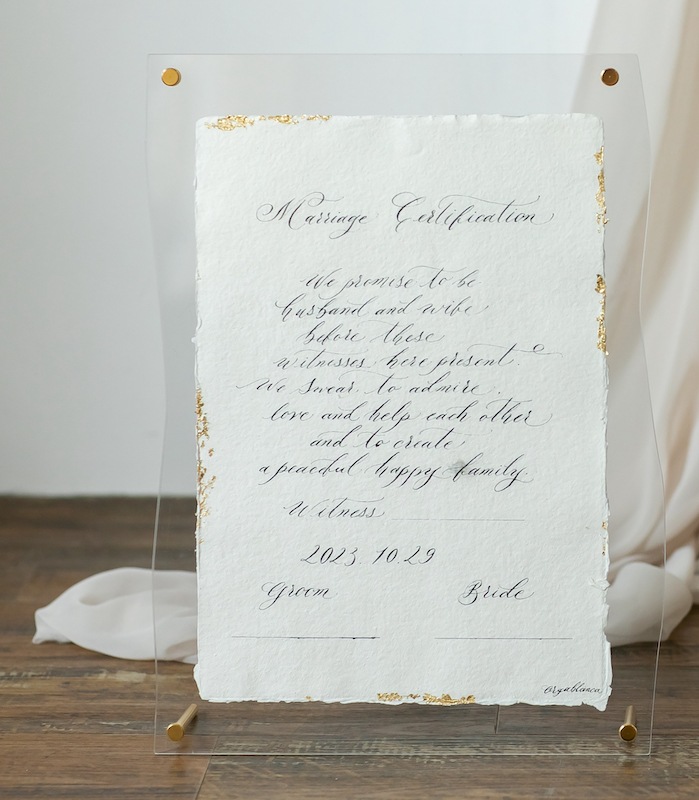 Marriage Certification
We promise to be
husband and wife
before these
witnesses here present.
We swear to admire,
love and help each other
and to create
a peaceful happy family.
Witness
2023. 10. 29
Groom Bride